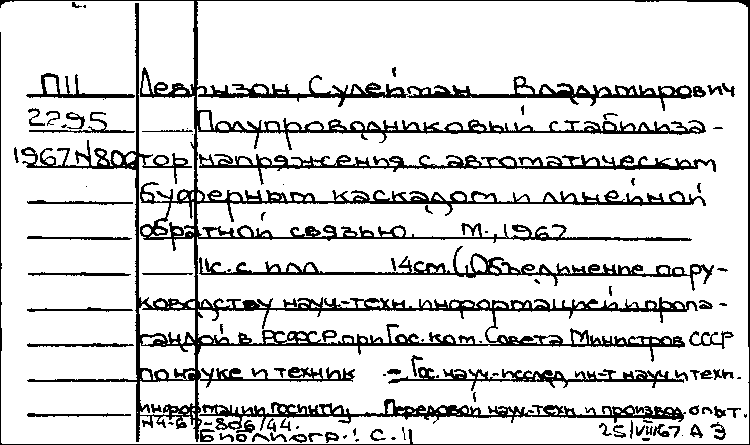 П11 Левинзон, Сулейман Владимирович
2295 Полупроводниковый стабилиза-
1967 N 800 тор напряжения с автоматическим
буферным каскадом и линейной
обратной связью. М., 1967
11с. с илл. 14см. (Объединение по ру-
ководству науч.-техн. информацией и пропа-
гандой в РСФСР при Гос. ком. Совета Министров СССР
по науке и техник = Гос. науч.-исслед. ин-т науч. и техн.
информации ГОСИНТИ, Передовой науч.-техн. и производ. опыт.
N4-67-806/44. 25/VIII67 А Э
Библиогр.: с. 11